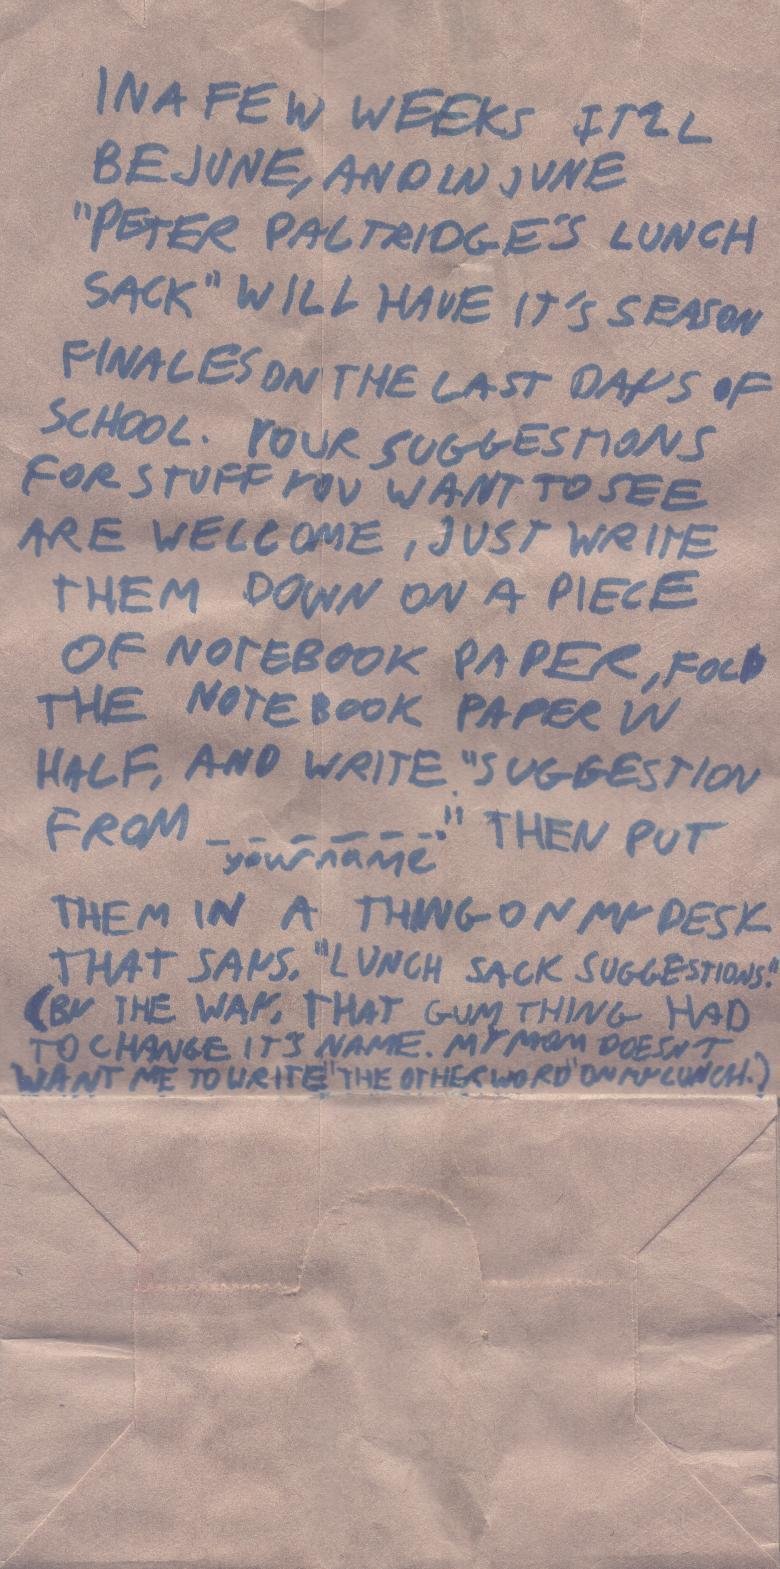 IN A FEW WEEKS IT'LL
BE JUNE, AND IN JUNE
"PETER PALTRIDGE'S LUNCH
SACK" WILL HAVE IT'S SEASON
FINALES ON THE LAST DAYS OF
SCHOOL. YOUR SUGGESTIONS
FOR STUFF YOU WANT TO SEE
ARE WELCOME, JUST WRITE
THEM DOWN ON A PIECE
OF NOTEBOOK PAPER, FOLD
THE NOTEBOOK PAPER IN
HALF, AND WRITE "SUGGESTION
FROM _ _ _ _ _ _ _." THEN PUT
your name
THEM IN A THING ON MY DESK
THAT SAYS, "LUNCH SACK SUGGESTIONS."
(BY THE WAY, THAT GUM THING HAD
TO CHANGE IT'S NAME. MY MOM DOESN'T
WANT ME TO WRITE "THE OTHER WORD" ON MY LUNCH.)